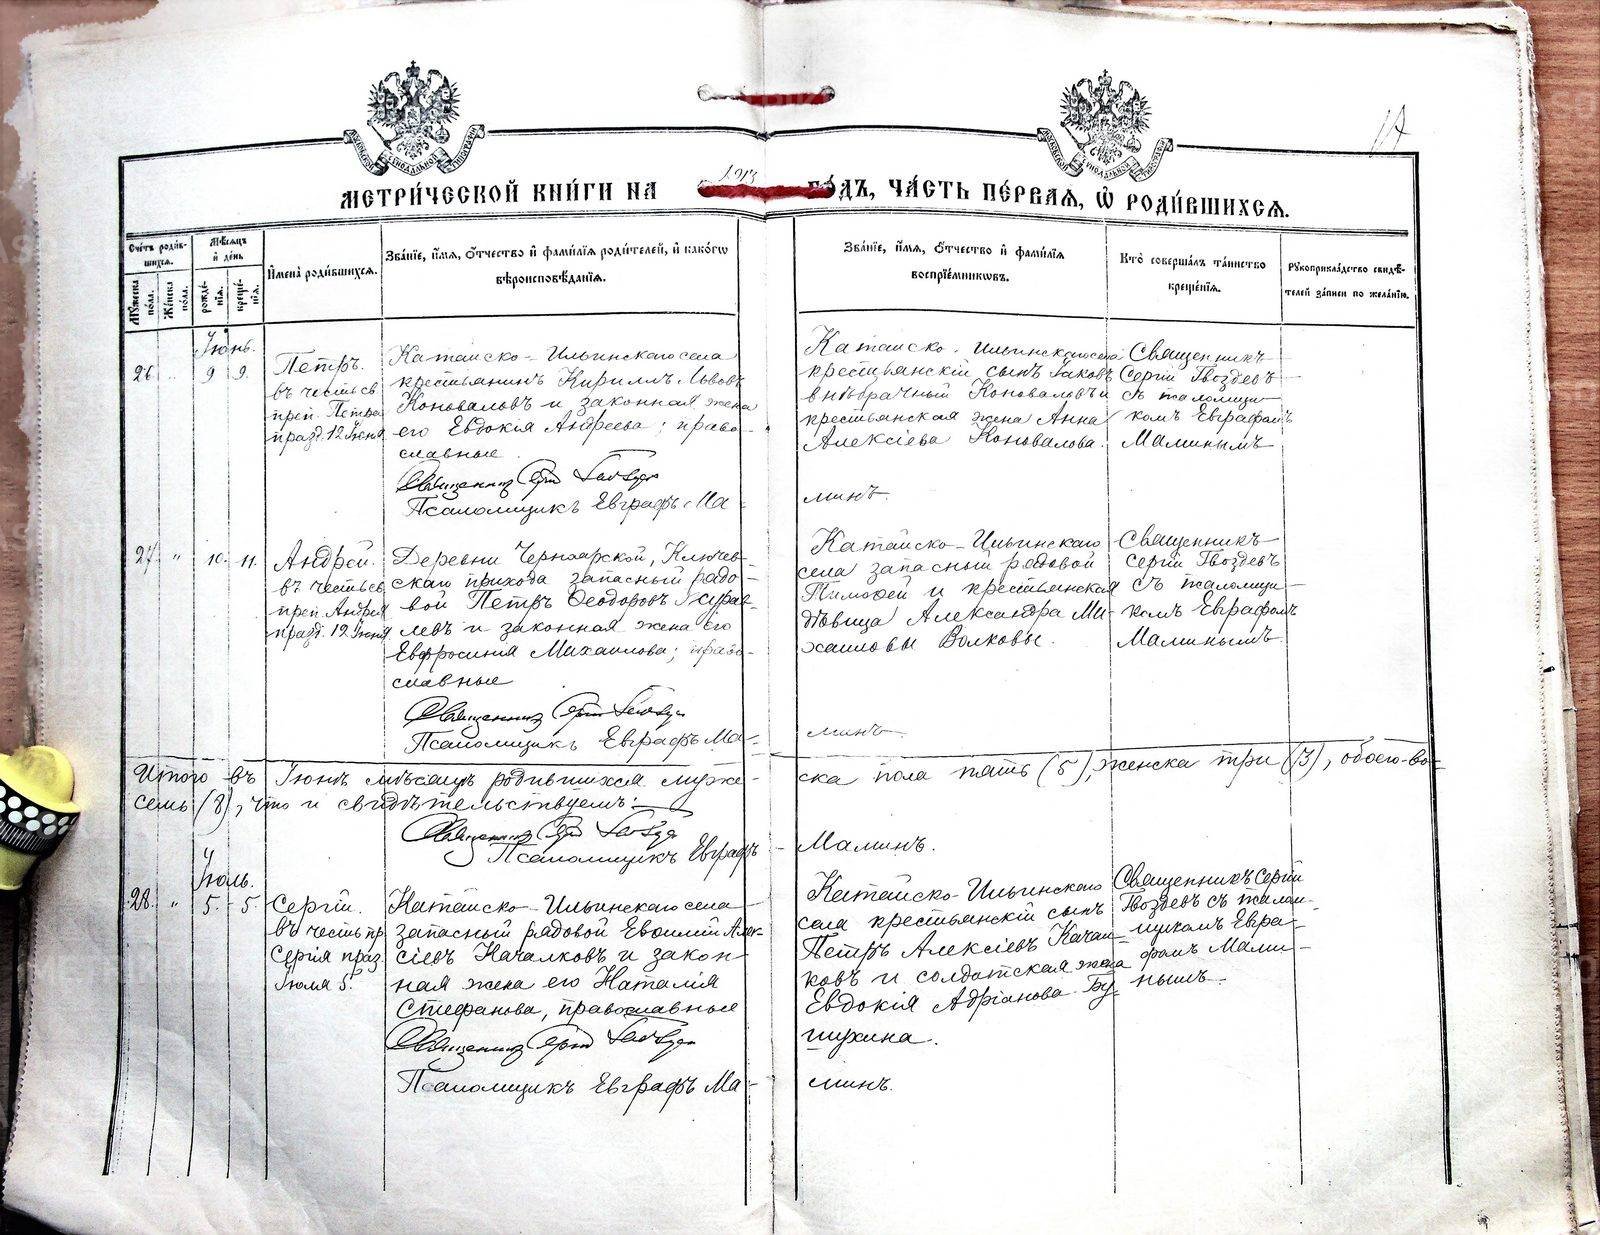 117
МЕТРИ́ЧЕСКОЙ КНИ́ГИ НА 1913 ГО́ДЪ, ЧА́СТЬ ПЕ́РВАЯ, Ѡ РОДИ́ВШИХСЯ.
Сче́тъ роди́вшихся.
Му́жеска по́ла.
Же́нска по́ла.
Мѣ́сяцъ и де́нь
рожде́нія.
креще́нія.
Имена̀ роди́вшихся.
Зва́ніе, и́мя, о́тчество и фами́лія роди́телей, и како́гѡ
вѣроисповѣ́данія.
Зва́ніе, и́мя, о́тчество и фами́лія
воспріе́мниковъ.
Кто̀ соверша́лъ та́инство
креще́нія.
Рукоприкла́дство свидѣ́-
телей за́писи по жела́нію.
Іюнь.
26 " 9 9.
Петръ.
въ честь св
преп. Петра
празд. 12 Іюня
Катайско-Ильинскаго села
крестьянинъ Кириллъ Львовъ
Коноваловъ и законная жена
его Евдокія Андреева; право-
славные.
Священникъ Сергій Гвоздевъ
Псаломщикъ Евграфъ Ма-
Катайско-Ильинскаго села
крестьянскій сынъ Іаковъ
внѣбрачный Коноваловъ и
крестьянская жена Анна
Алексіева Коновалова.
минъ.
Священникъ
Сергій Гвоздевъ
съ псаломщи-
комъ Евграфомъ
Маминымъ
27 " 10. 11.
Андрей.
въ честь св
преп. Андрея
празд. 12 Іюня
Деревни Черноярской, Ключев-
скаго прихода запасный рядо-
вой Петръ Ѳеодоровъ Журав-
левъ и законная жена его
Евфросинія Михаилова; право-
славные
Священникъ Сергій Гвоздевъ
Псаломщикъ Евграфъ Ма-
Катайско-Ильинскаго
села запасный рядовой
Тимофей и крестьянская
дѣвица Александра Ми-
хаиловы Волковы.
минъ.
Священникъ
Сергій Гвоздевъ
съ псаломщи-
комъ Евграфомъ
Маминымъ.
Итого въ Іюнѣ мѣсяцѣ родившихся муже-ска пола пять (5), женска три (3), обоего-во-
семь (8), что и свидѣтельствуемъ:
Священникъ Сергій Гвоздевъ
Псаломщикъ Евграфъ Маминъ.
Іюль.
28. " 5. 5.
Сергій.
въ честь пр
Сергія праз
Іюля 5.
Катайско-Ильинскаго села
запасный рядовой Евѳимій Алек-
сіевъ Качалковъ и закон-
ная жена его Наталія
Стефанова, православные
Священникъ Сергій Гвоздевъ
Псаломщикъ Евграфъ Ма-
Катайско-Ильинскаго
села крестьянскій сынъ
Петръ Алексіевъ Качал-
ковъ и солдатская жена
Евдокія Адріанова Бу-
шухина.
минъ.
Священникъ Сергій
Гвоздевъ съ псалом-
щикомъ Евгра-
фомъ Мами-
нымъ.